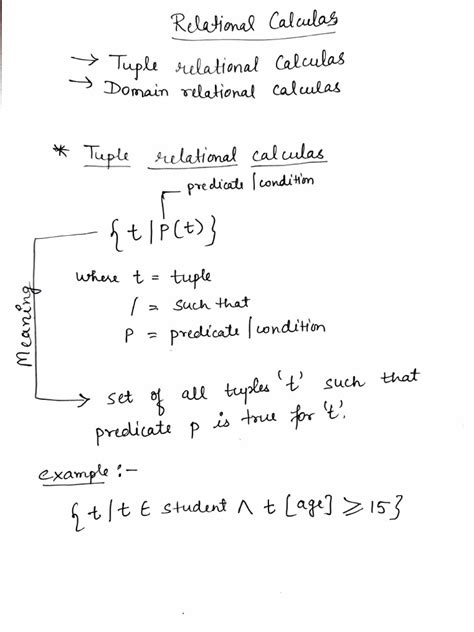 Relational Calculas
→ Tuple relational Calculas
→ Domain relational calculas
* Tuple relational calculas
predicate/condition
{ t | P(t) }
where t = tuple
/ = such that
P = predicate/condition
Meaning
→ set of all tuples 't' such that
predicate p is true for 't'.
example :-
{ t / t ∈ student ∧ t [age] ≥ 15 }